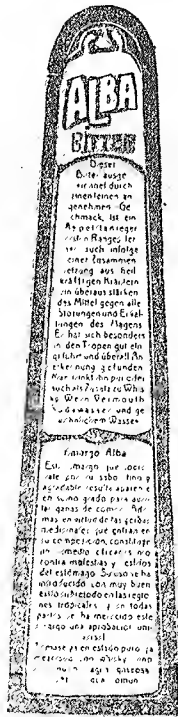 ALBA
BITTER
Dieser
Bitter ausge
zeichnet durch
einen feinen an
genehmen Ge
schmack, ist ein
Appetitanreger
ersten Ranges Fer
ner auch infolge
einer Zusammen
setzung aus heil
kräftigen Kräutern
ein überaus stärken
des Mittel gegen alle
Störungen und Erkäl
tungen des Magens
Er hat sich besonders
in den Tropen gut ein
geführt und überall An
erkennung gefunden
Man trinkt ihn pur oder
auch als Zusatz zu Whis
ky Wein Vermouth
Sodawasser und ge
wöhnlichem Wasser
Amargo Alba
Este amargo que
por su sabo fino y
agradable resulta aparen e
en sumo grado para aum
las ganas de comer. Ade
mas en virtud de las yerbas
medicinales que entran en
su composicion, constituye
un remedio eficaces mo
contra molestias y
del estómago. Su uso se ha
introducido con muy buen
exito sobre todo en las regio
nes tropicales y en todas
partes se ha merecido este
amargo una aprobacion uni
versal
Tomase ya en estado puro ya
mezclado con whisky vino
agua gaseosa
agua comun